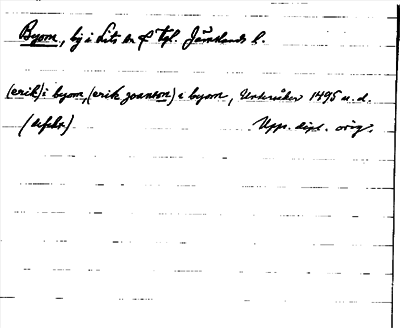 Byom, by i Lits sn o tgl. Jämtlands l.
(erik) i byom, (erik joansson) i byom, Undersåker 1495 u.d.
(Avskr.) Upps. dipl. orig.